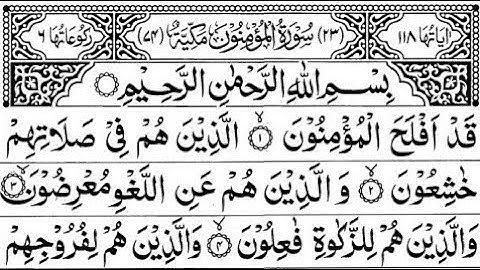 اٰيَاتُهَا ١١٨ (٢٣) سُوْرَةُ الْمُؤْمِنُوْنَ مَكِّيَّةٌ (٧٤) رُكُوْعَاتُهَا ٦
بِسْمِ اللّٰهِ الرَّحْمٰنِ الرَّحِيْمِ
قَدْ اَفْلَحَ الْمُؤْمِنُوْنَ ۙ‏﴿١﴾ الَّذِيْنَ هُمْ فِيْ صَلَاتِهِمْ
خٰشِعُوْنَ ۙ‏﴿٢﴾ وَالَّذِيْنَ هُمْ عَنِ اللَّغْوِ مُعْرِضُوْنَ ۙ‏﴿٣﴾
وَالَّذِيْنَ هُمْ لِلزَّكٰوةِ فٰعِلُوْنَ ۙ‏﴿٤﴾ وَالَّذِيْنَ هُمْ لِفُرُوْجِهِمْ